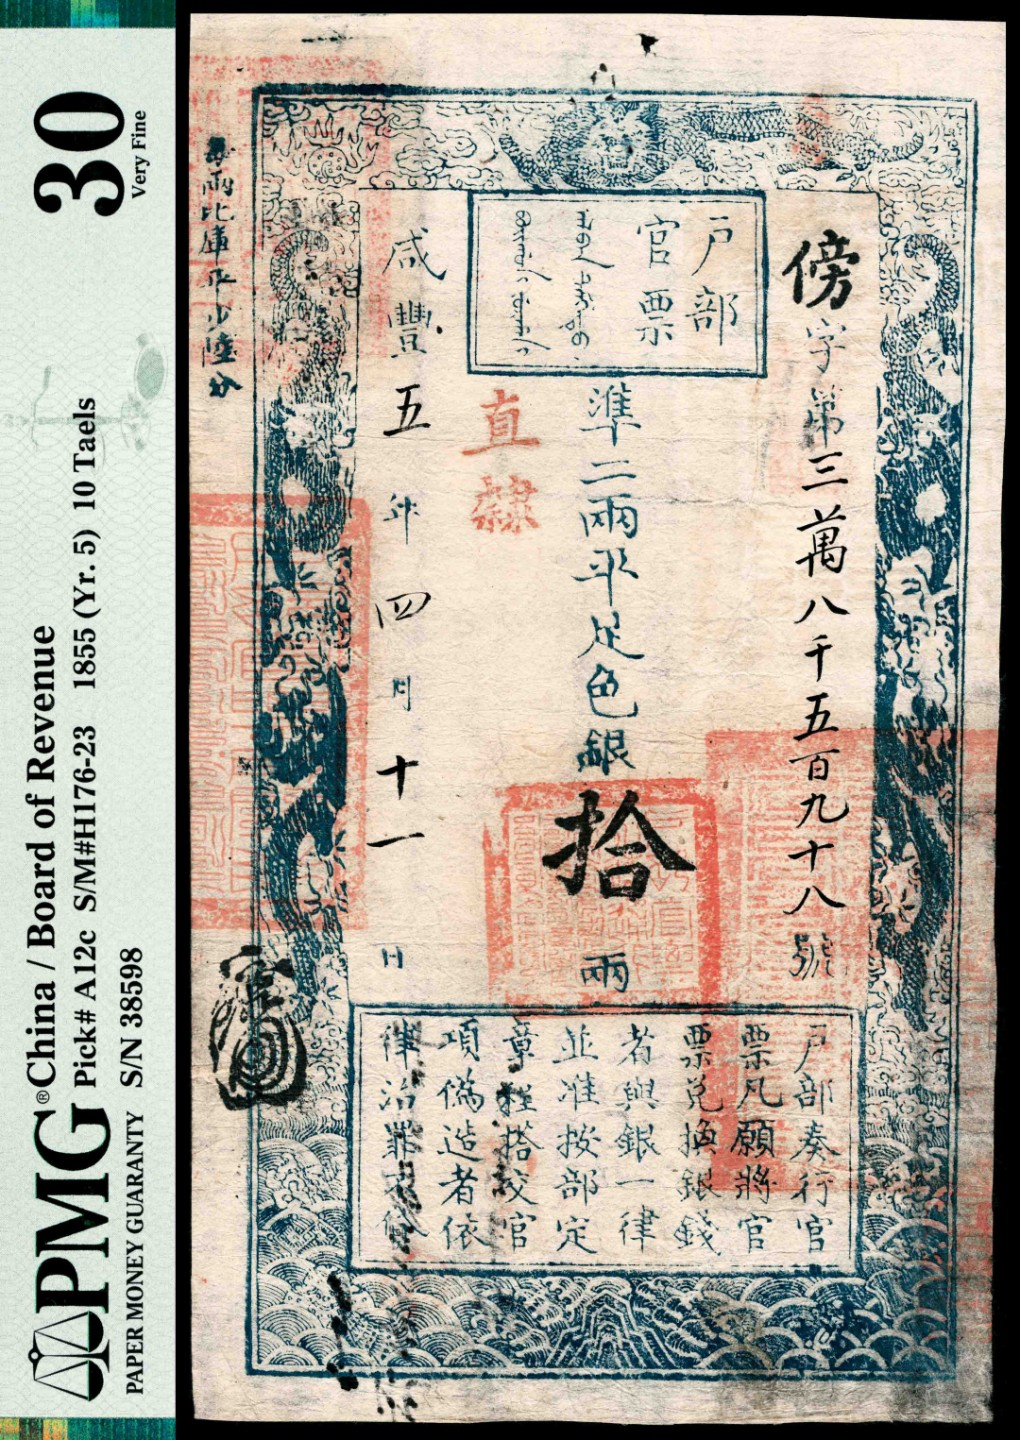 30
Very Fine
PMG®
China / Board of Revenue
Pick# A12c S/M#H176-23 1855 (Yr. 5) 10 Taels
PAPER MONEY GUARANTY S/N 38598
戶部
官票
傍字第三萬八千五百九十八號
準二兩平足色銀拾兩
直隸
咸豐五年四月十一日
每兩比庫平少陸分
戶部奏行官
票凡願將官
票兌換銀錢
者與銀一律
並准按部定
章程搭交官
項偽造者依
律治罪不